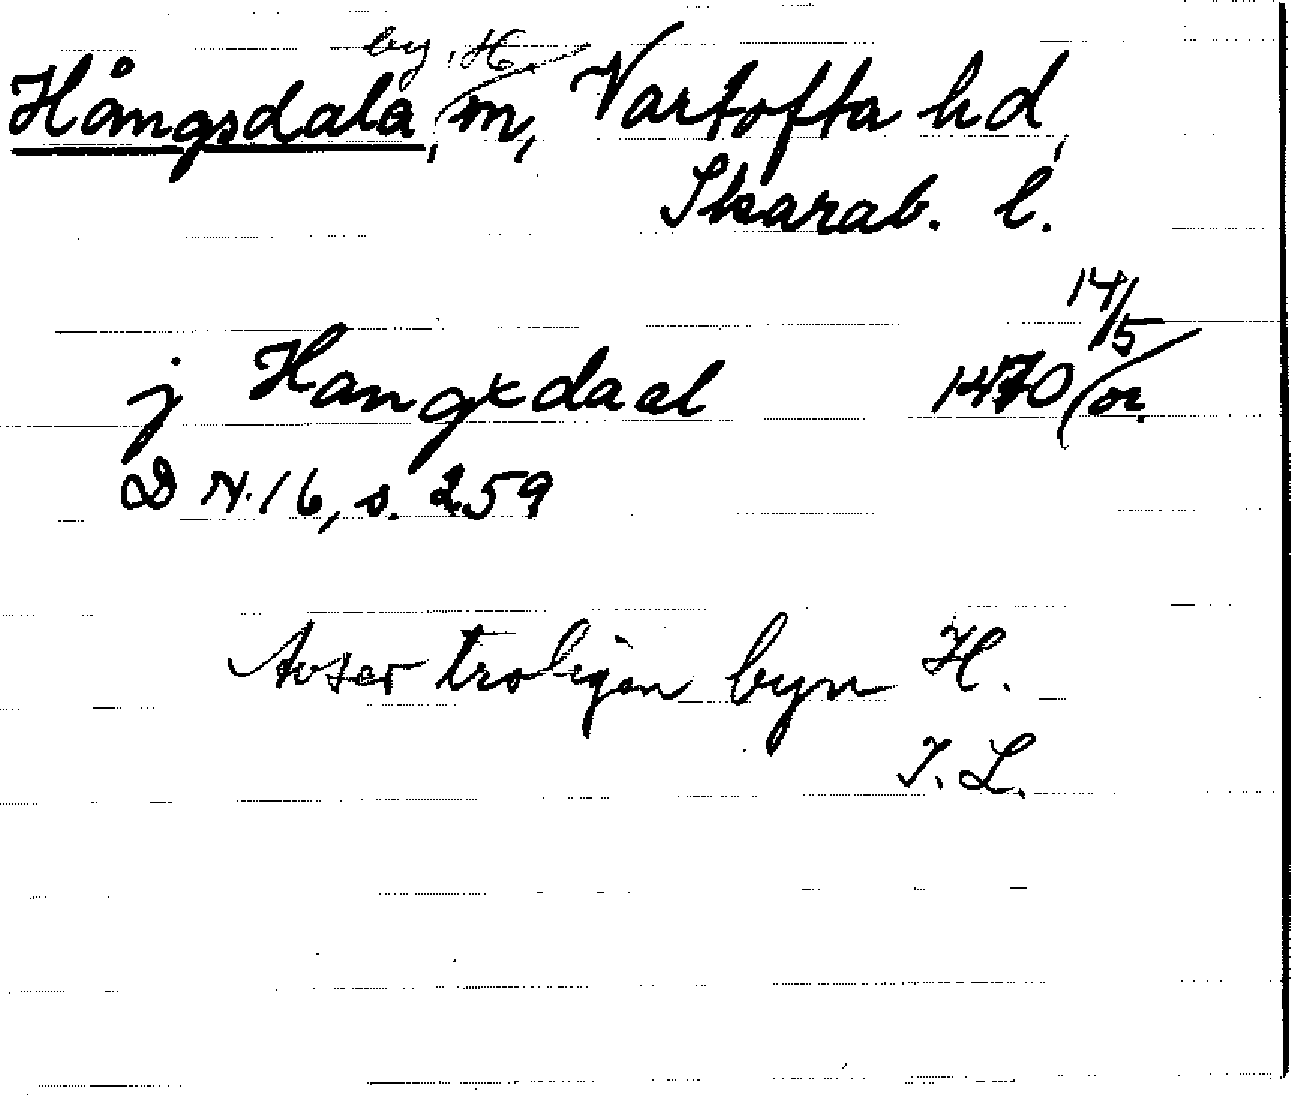 by, H.
Hångsdala, sn, Vartofta hd,
Skarab. l.
14/5
j Hangxdaal 1470 or.
DN. 16, s. 259
Avser troligen byn H.
I. L.